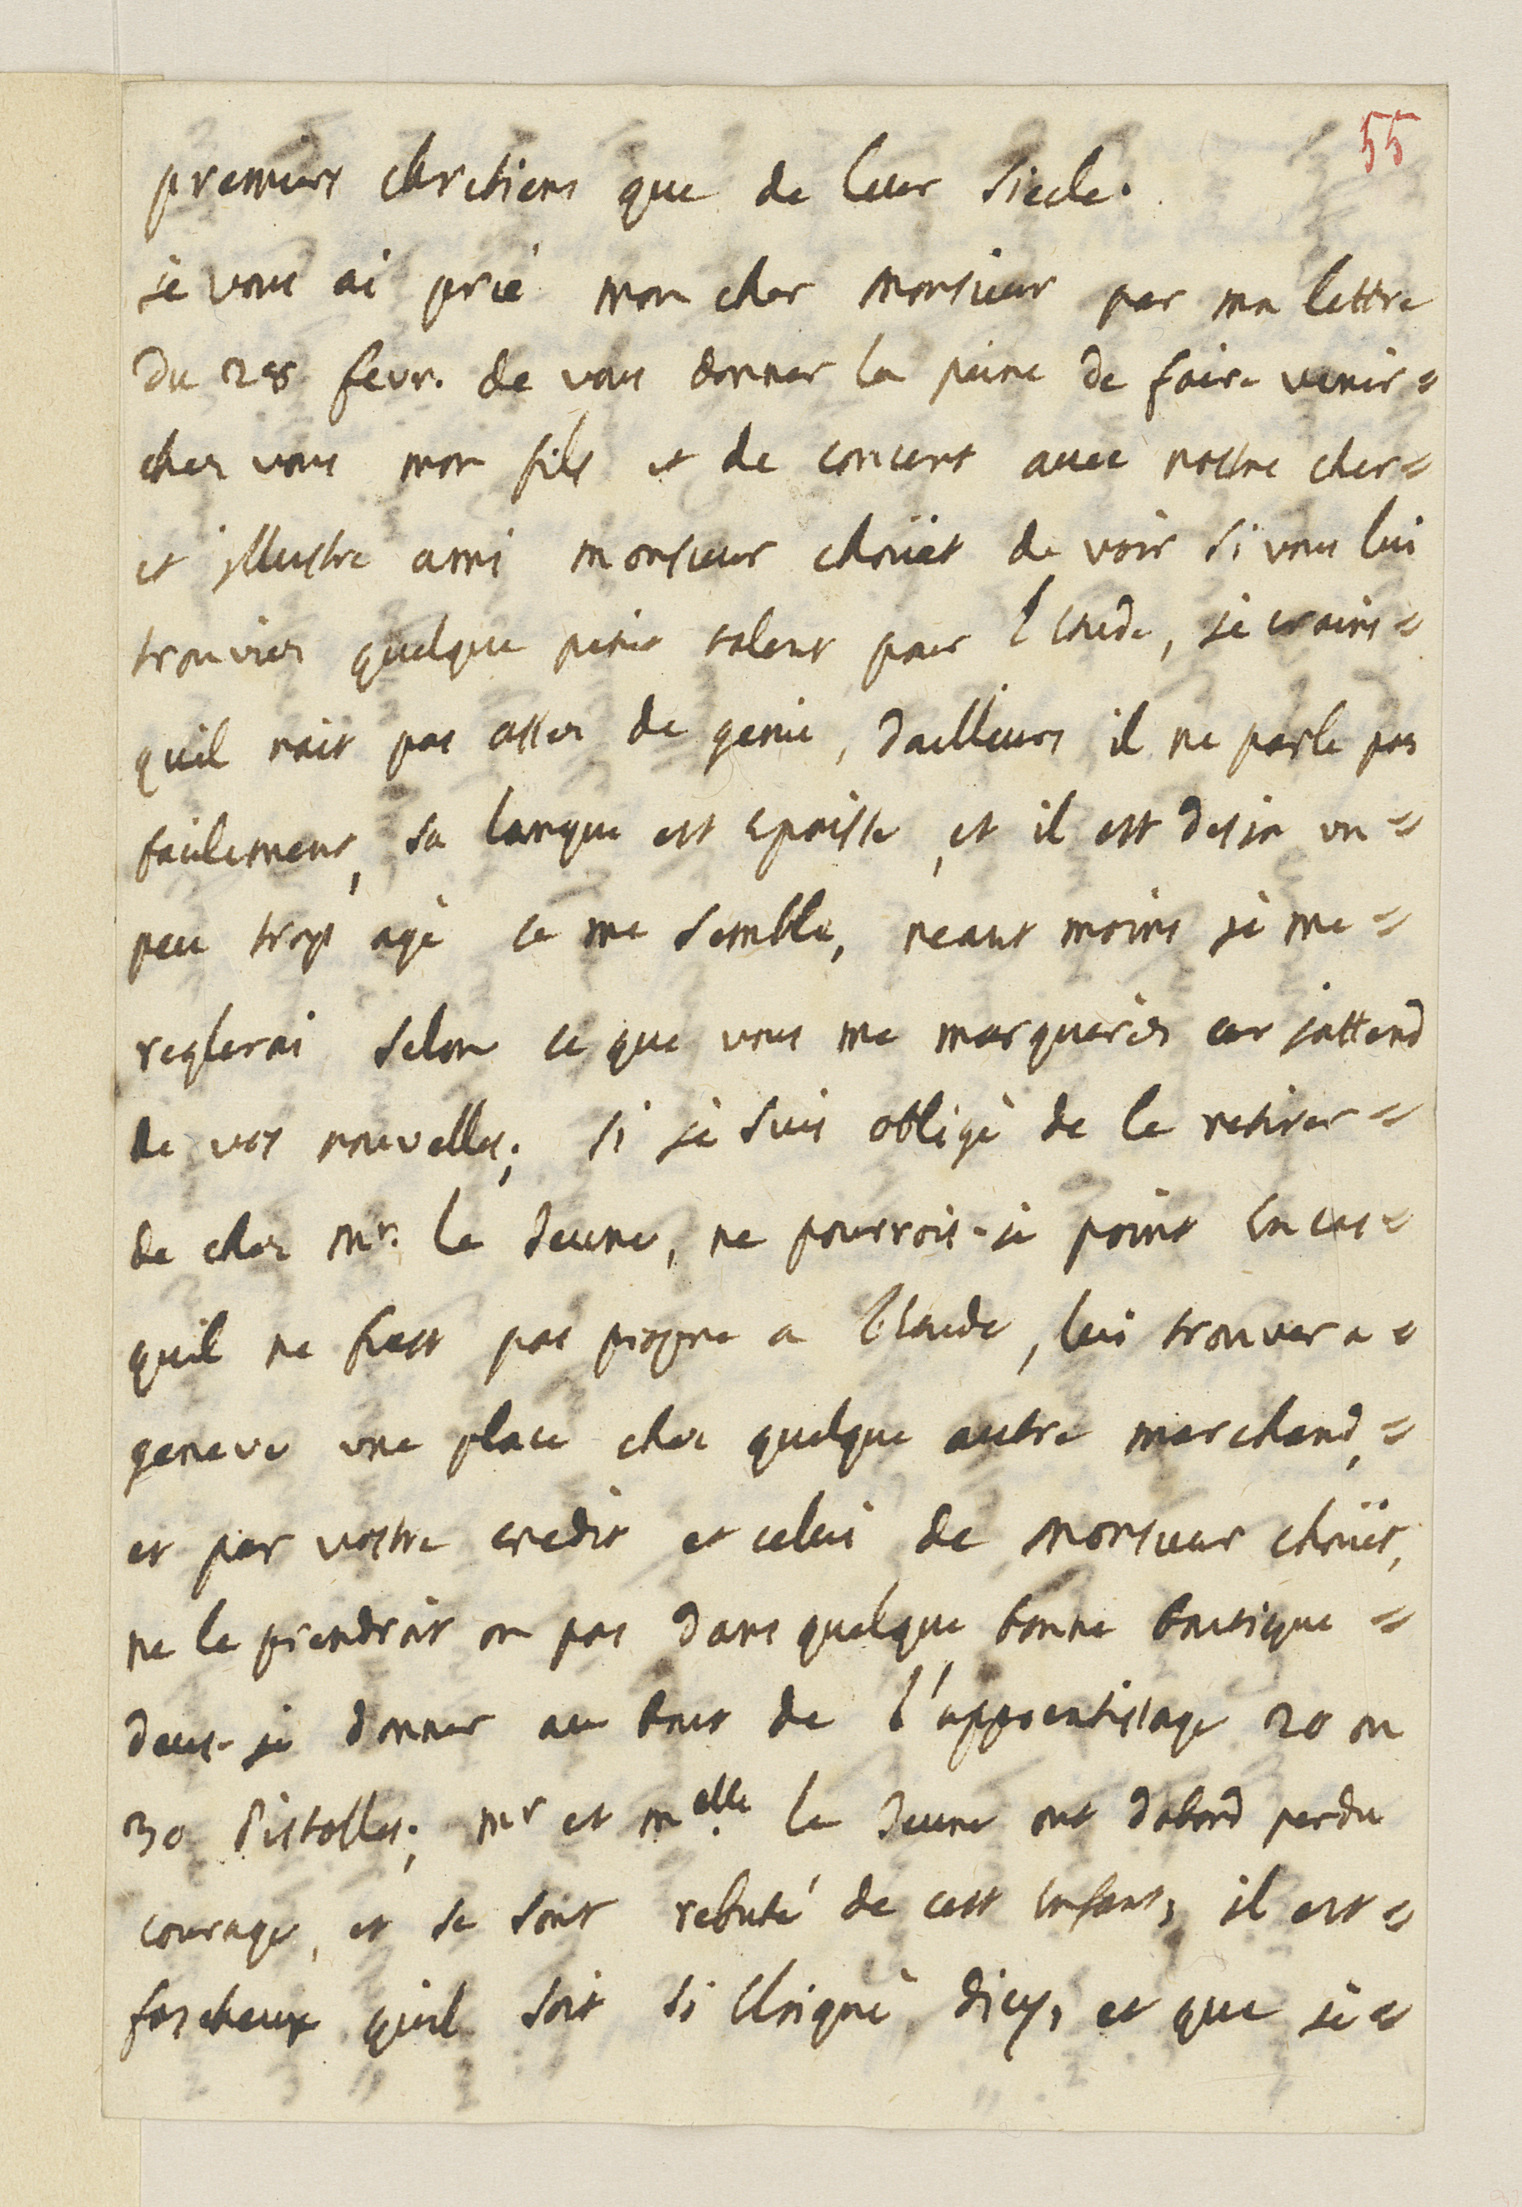 55
premiers chretiens que de leur siecle.
je vous ai prié mon cher monsieur par ma lettre
du 28 fevr. de vous donner la peine de faire venir =
chez vous mon fils et de concert avec nostre cher =
et jllustre ami monsieur choüet de voir si vous lui
trouviez quelque petit talent pour l'etude, je crains =
quil nait pas assez de genie, dailleurs il ne parle pas
facilement, sa langue est epaisse, et il est desja un =
peu trop agé ce me semble, neant moins je me =
reglerai selon ce que vous me marquerez car jattend
de vos nouvelles; si je suis obligé de le retirer =
de chez mr. le Jeune, ne pourrois-je point en cas =
quil ne fust pas propre a l'etude, lui trouver a =
geneve une place chez quelque autre marchand, =
et par vostre credit et celui de monsieur choüet,
ne le prendroit on pas dans quelque bonne boutique =
deus-je donner au bout de l'apprentissage 20 ou
30 pistolles; mr et melle. le Jeune ont dabord perdu
courage, et se sont rebuté de cest enfant, il est =
fascheux quil soit si eloigné dicy, et que je =